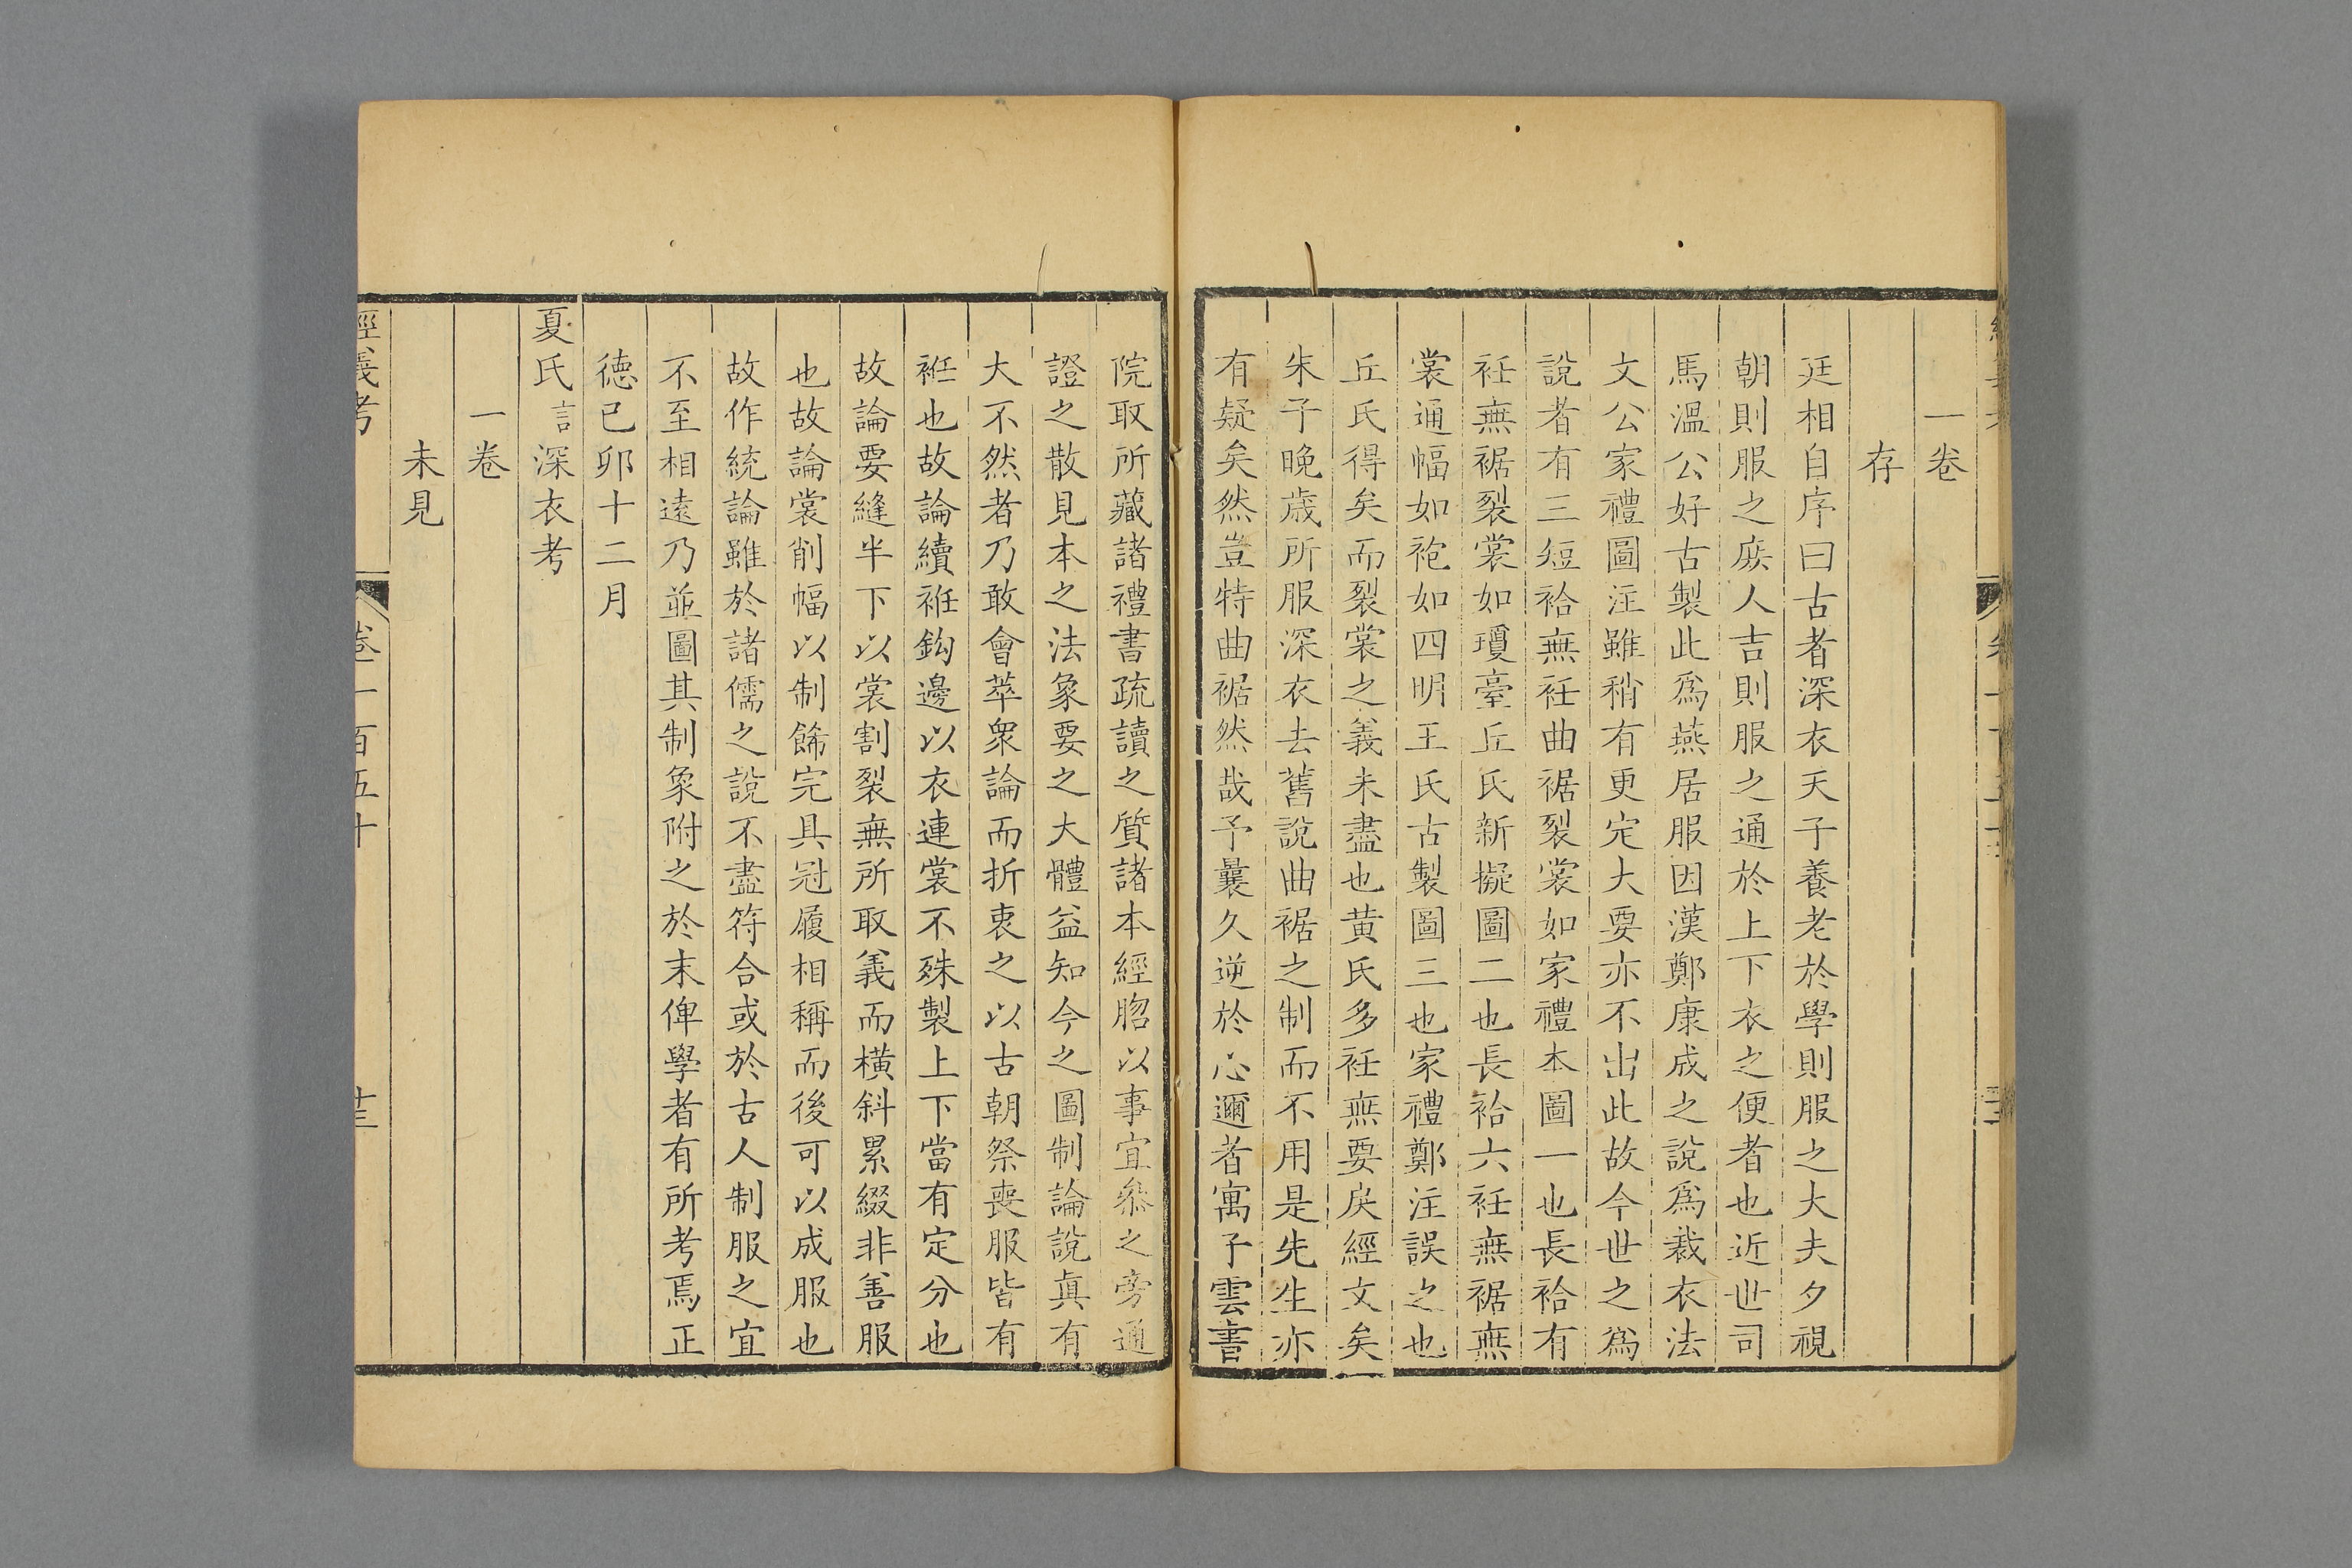 一卷
存
廷相自序曰古者深衣天子養老於學則服之大夫夕視
朝則服之庶人吉則服之通於上下衣之便者也近世司
馬溫公好古製此爲燕居服因漢鄭康成之說爲裁衣法
文公家禮圖注雖稍有更定大要亦不出此故今世之爲
說者有三短袷無衽曲裾裂裳如家禮本圖一也長袷有
衽無裾裂裳如瓊臺丘氏新擬圖二也長袷六衽無裾無
裳通幅如袍如四明王氏古製圖三也家禮鄭注誤之也
丘氏得矣而裂裳之義未盡也黃氏多衽無要戾經文矣
朱子晚歲所服深衣去舊說曲裾之制而不用是先生亦
有疑矣然豈特曲裾然哉予曩久逆於心邇者寓子雲書
院取所藏諸禮書疏讀之質諸本經脗以事宜叅之旁通
證之散見本之法象要之大體益知今之圖制論說眞有
大不然者乃敢會萃衆論而折衷之以古朝祭喪服皆有
袵也故論續袵鈎邊以衣連裳不殊製上下當有定分也
故論要縫半下以裳割裂無所取義而橫斜累綴非善服
也故論裳削幅以制餙完具冠履相稱而後可以成服也
故作統論雖於諸儒之說不盡符合或於古人制服之宜
不至相遠乃並圖其制象附之於末俾學者有所考焉正
德已卯十二月
夏氏言深衣考
一卷
未見
經義考 卷一百五十